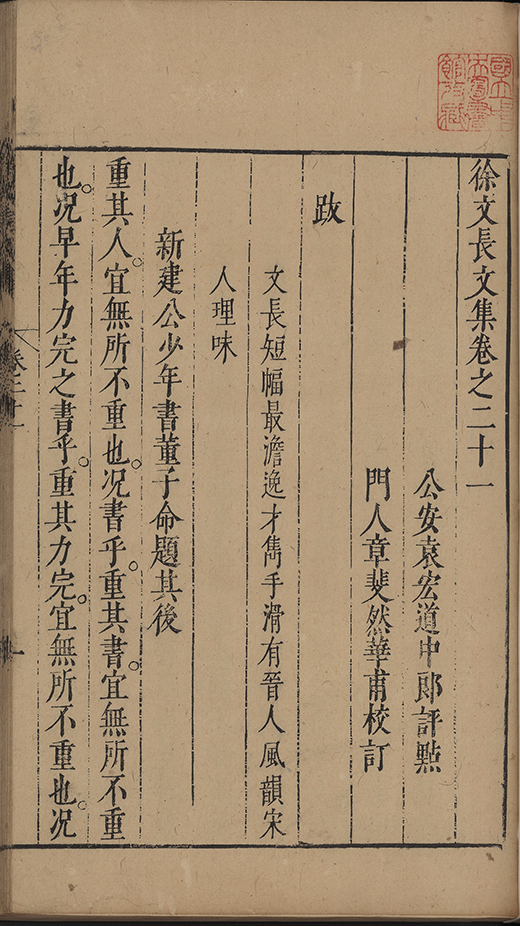 徐文長文集卷之二十一
公安袁宏道中郎評點
門人章斐然華甫校訂
跋
文長短幅最澹逸才雋手滑有晉人風韻宋
人理味
新建公少年書董子命題其後
重其人宜無所不重也。况書乎。重其書。宜無所不重
也。况早年力完之書乎。重其力完。宜無所不重也。况
卷二十一
一
國立中
央圖書
館考藏